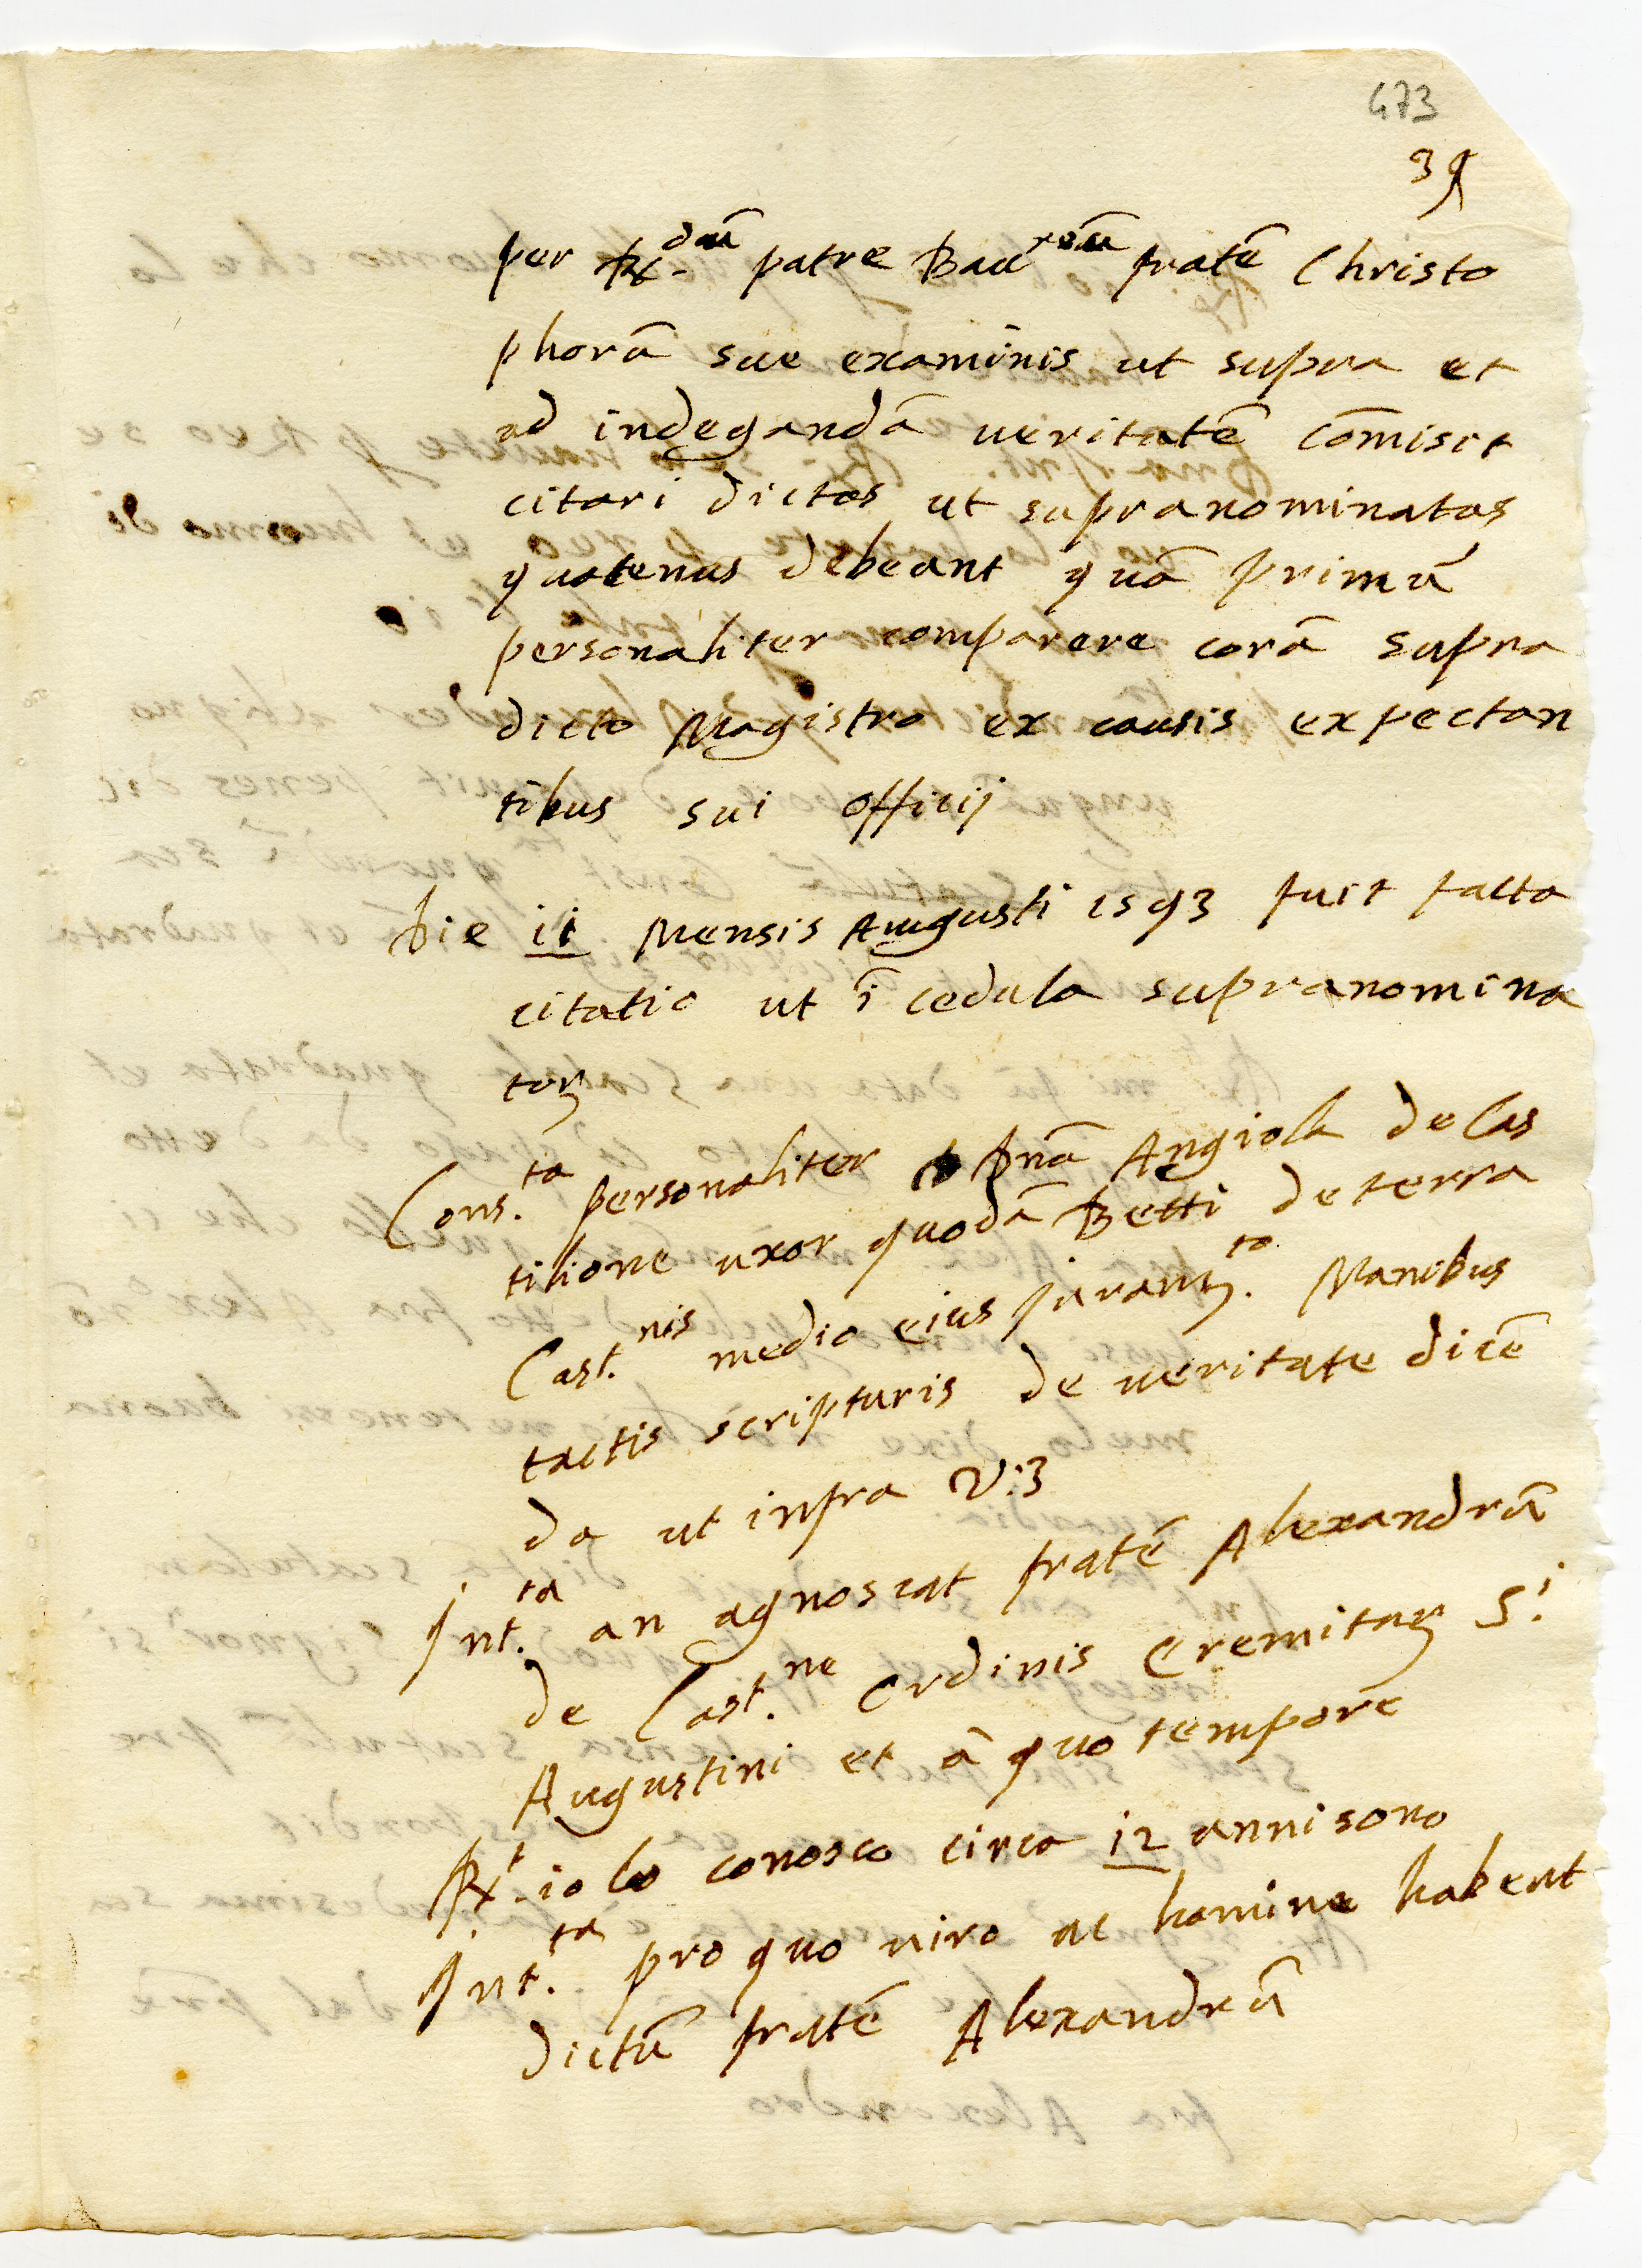 473
39
per R.dũ patre Bacc.reũ fratẽ Christo
phorũ sue examinis ut supra et
ad indegandã ueritatẽ com̃isit
citari dictos ut supranominatos
quatenus debeant quã primũ
personaliter comparere corã supra
dicto Magistro ex causis expectan
tibus sui officij
Die 11 Mensis Augusti 1593 fuit facta
citatio ut ĩ cedula supranomina
torꝫ
Cons.ta personaliter Dnã Angiola de Cas
tilione uxor quodã Betti de terra
Cast.nis medio eius juramꝫ.to Manibus
tactis scripturis de ueritate dicẽ
da ut infra V:3
Int.ta an agnoscat fratẽ Alexandrũ
de Cast.ne Ordinis Eremitaꝝ S.i
Augustini et ã quo tempore
R.t io lo conosco circa 12 anni sono
Int.ta pro quo uiro ac homine habent
dictũ fratẽ Alexandrũ